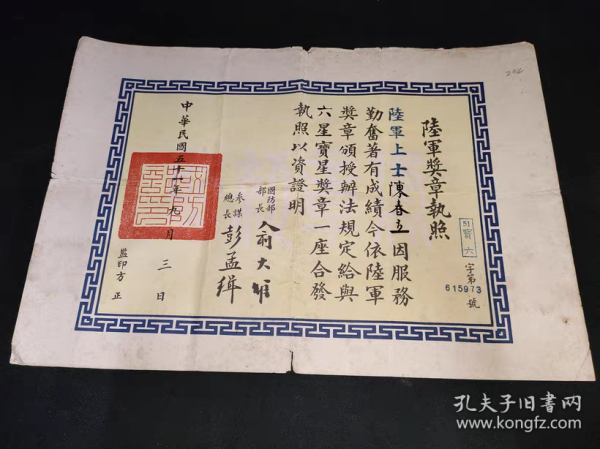 陸軍獎章執照
寶六
字第
615973
號
陸軍上士陳春立因服務
勤奮著有成績今依陸軍
獎章頒授辦法規定給與
六星寶星獎章一座合發
執照以資證明
國防部
部長
俞大維
參謀
總長
彭孟緝
中華民國五十一年九月三日
監印方正
孔夫子旧书网
www.kongfz.com